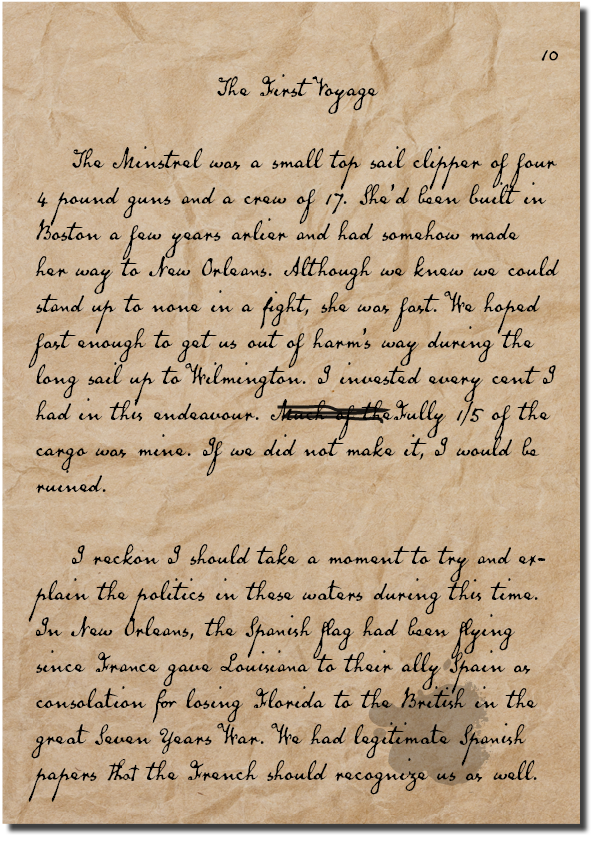 10
The First Voyage
The Minstrel was a small top sail clipper of four
4 pound guns and a crew of 17. She'd been built in
Boston a few years arlier and had somehow made
her way to New Orleans. Although we knew we could
stand up to none in a fight, she was fast. We hoped
fast enough to get us out of harm's way during the
long sail up to Wilmington. I invested every cent I
had in this endeavour. Much of the Fully 1/5 of the
cargo was mine. If we did not make it, I would be
ruined.
I reckon I should take a moment to try and ex-
plain the politics in these waters during this time.
In New Orleans, the Spanish flag had been flying
since France gave Louisiana to their ally Spain as
consolation for losing Florida to the British in the
great Seven Years War. We had legitimate Spanish
papers that the French should recognize us as well.